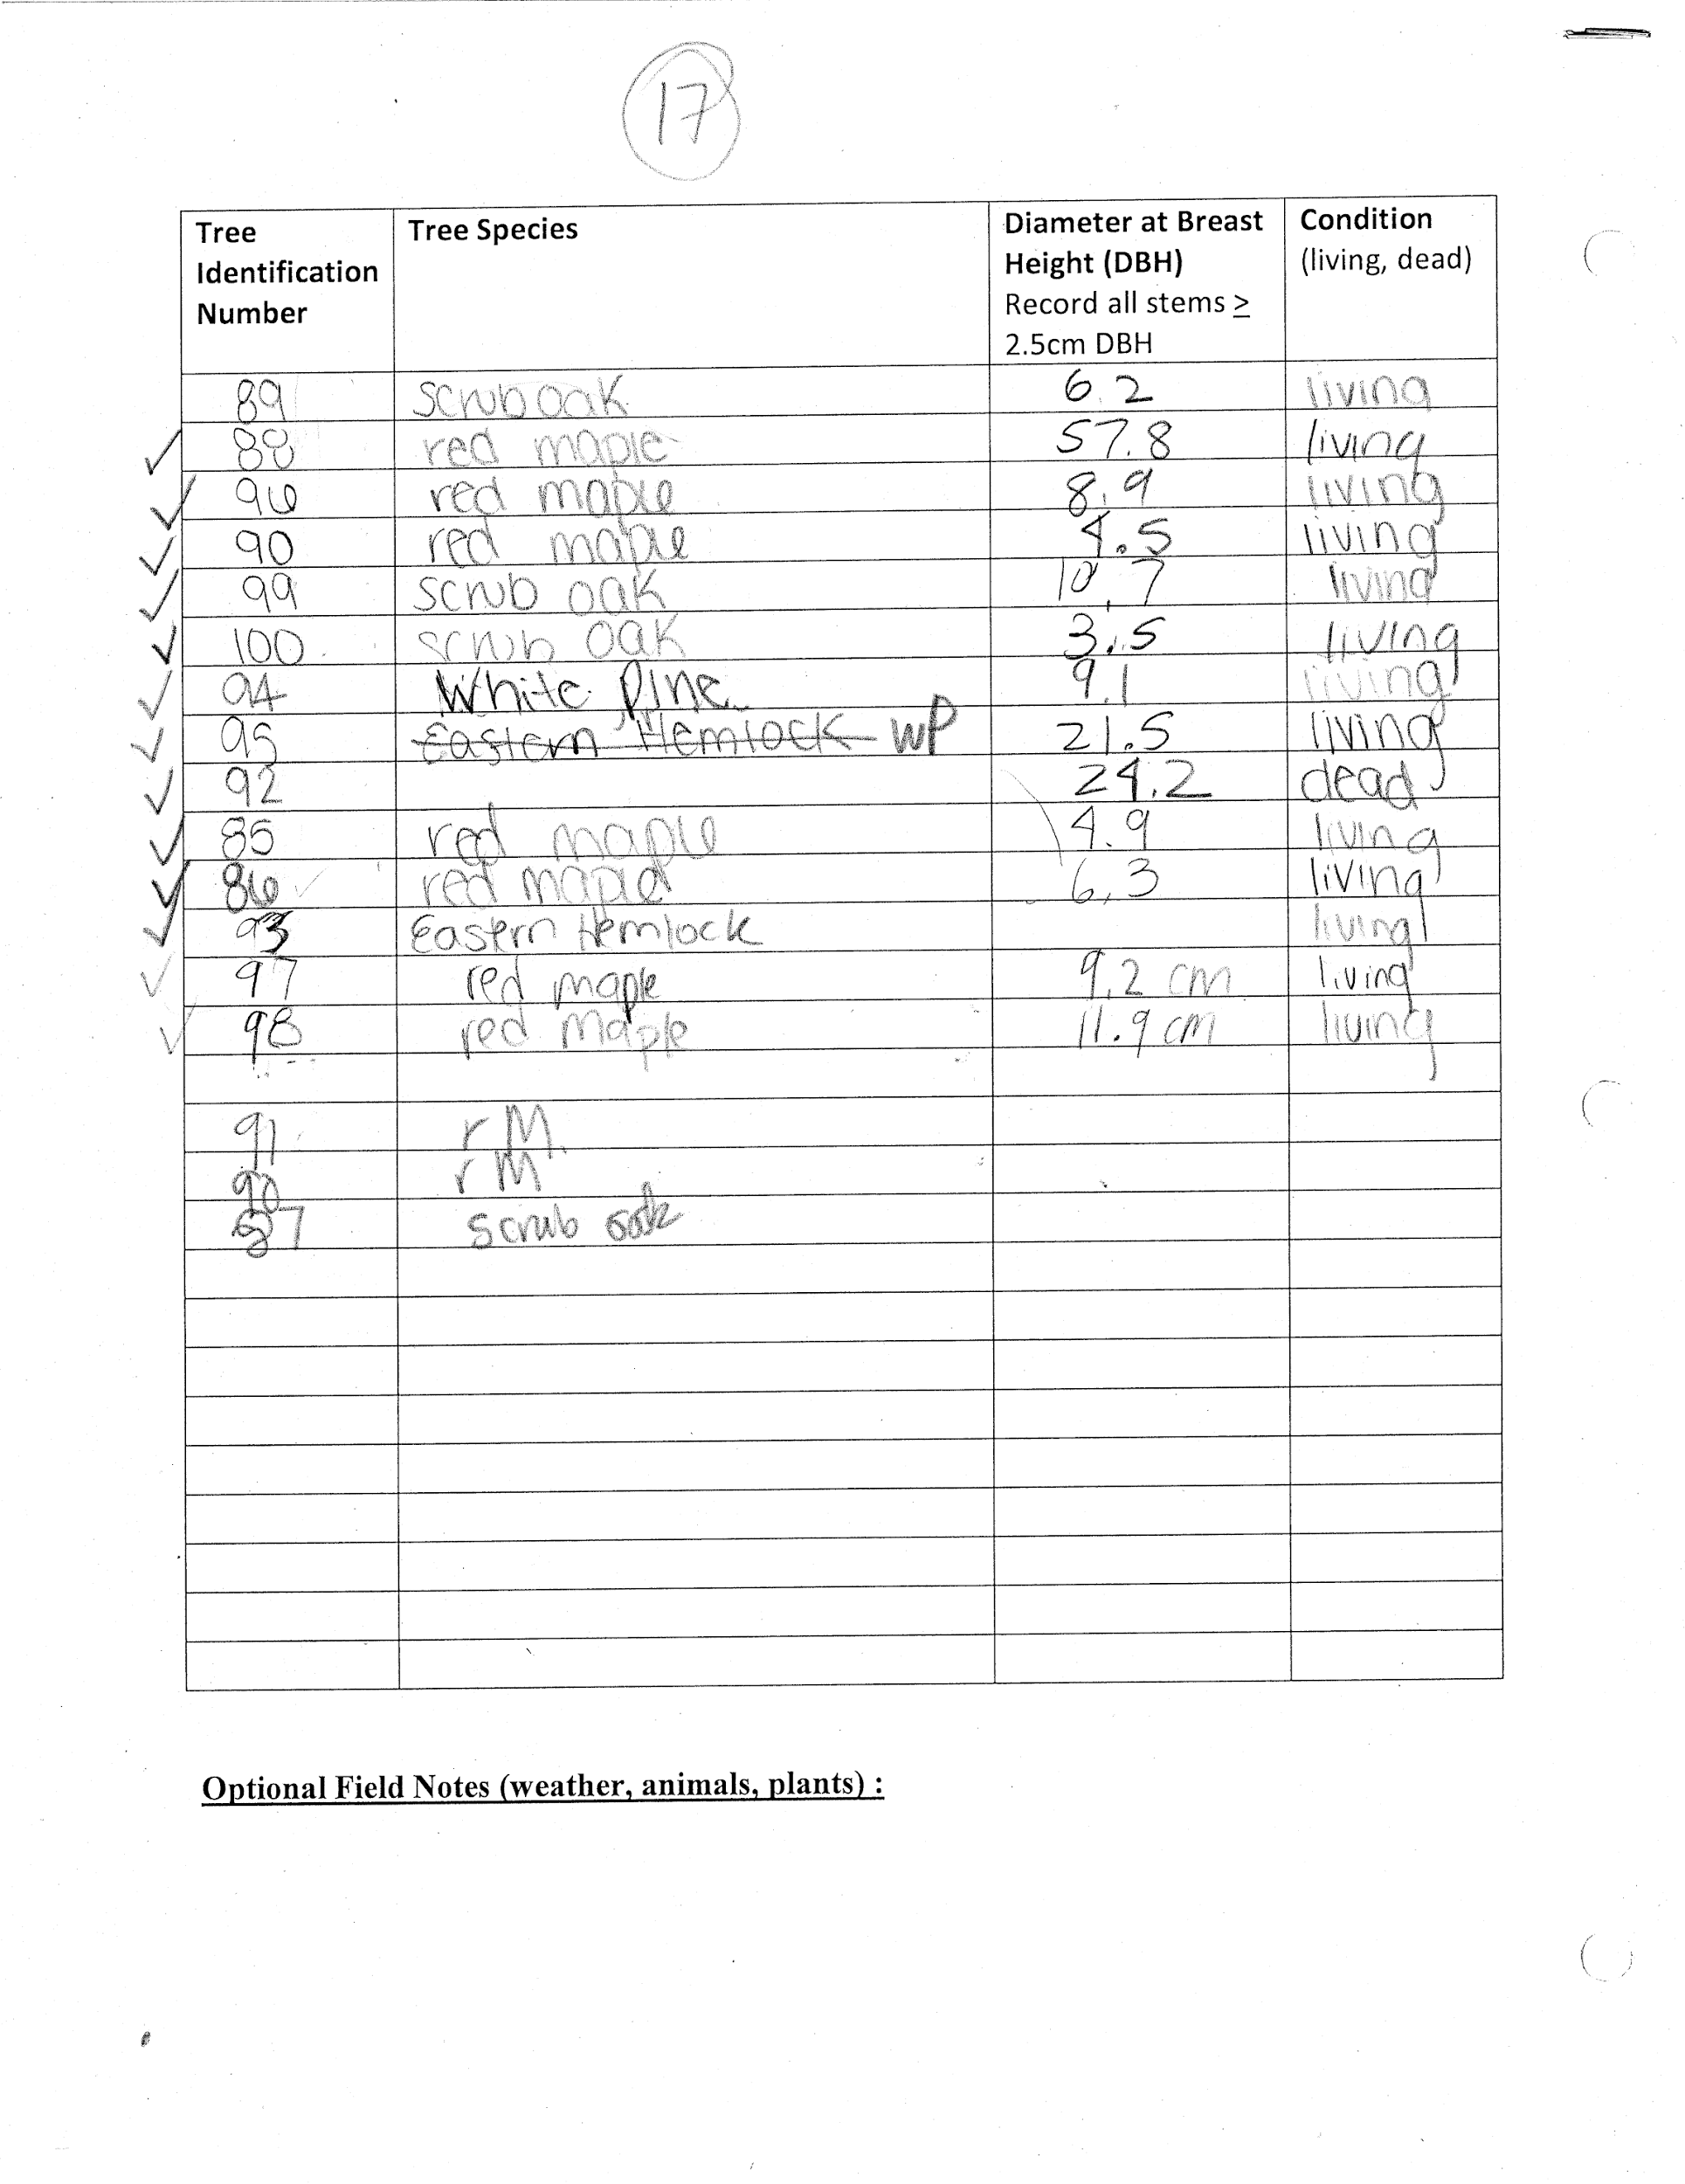 17
Tree Identification Number | Tree Species | Diameter at Breast Height (DBH) Record all stems ≥ 2.5cm DBH | Condition (living, dead)
89 | scrub oak | 6.2 | living
✓ 88 | red maple | 57.8 | living
✓ 96 | red maple | 8.9 | living
✓ 90 | red maple | 4.5 | living
✓ 99 | scrub oak | 10.7 | living
✓ 100 | scrub oak | 3.5 | living
✓ 94 | White Pine | 9.1 | living
✓ 95 | Eastern Hemlock WP | 21.5 | living
✓ 92 | | 24.2 | dead
✓ 85 | red maple | 4.9 | living
✓ 86 ✓ | red maple | 6.3 | living
✓ 93 | Eastern Hemlock | | living
✓ 97 | red maple | 9.2 cm | living
✓ 98 | red maple | 11.9 cm | living
91 | rM.
90 | rM
87 | scrub oak
Optional Field Notes (weather, animals, plants) :